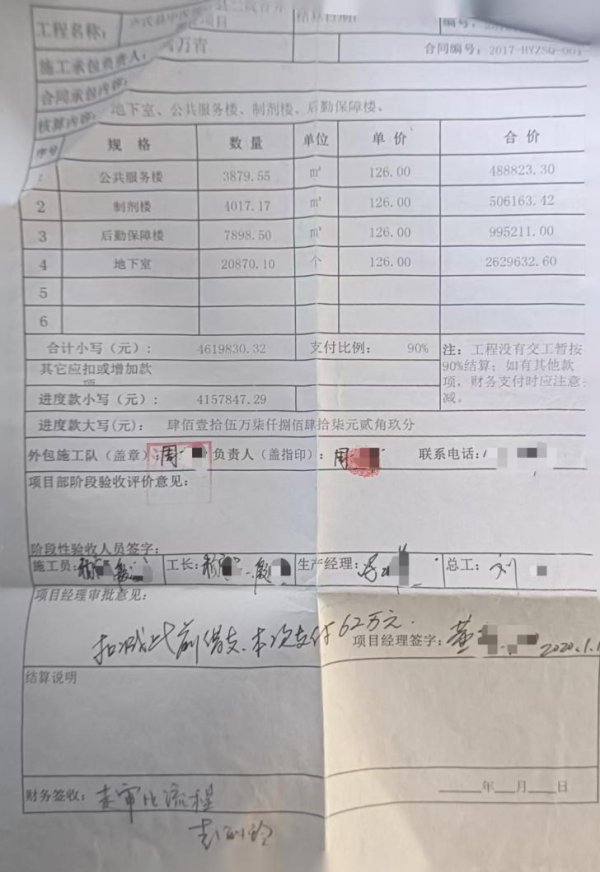 工程名称: 项目 结算日期: 编号:
施工承包负责人: 万青 合同编号: 2017-HYZSQ-001
合同承包内容:
核算内容: 地下室、公共服务楼、制剂楼、后勤保障楼。
序号 规格 数量 单位 单价 合价
1 公共服务楼 3879.55 ㎡ 126.00 488823.30
2 制剂楼 4017.17 ㎡ 126.00 506163.42
3 后勤保障楼 7898.50 ㎡ 126.00 995211.00
4 地下室 20870.10 个 126.00 2629632.60
5
6
合计小写(元): 4619830.32 支付比例: 90% 注:工程没有交工暂按
其它应扣或增加款 90%结算;如有其他款
项,财务支付时应注意
进度款小写(元): 4157847.29 减。
进度款大写(元): 肆佰壹拾伍万柒仟捌佰肆拾柒元贰角玖分
外包施工队(盖章): 周 负责人(盖指印): 周 联系电话:
项目部阶段验收评价意见:
阶段性验收人员签字:
施工员: 工长: 生产经理: 总工: 刘
项目经理审批意见:
扣减此前借支、本次支付62万元.
项目经理签字: 董 2020.1.1
结算说明
财务签收: 走审批流程 年 月 日